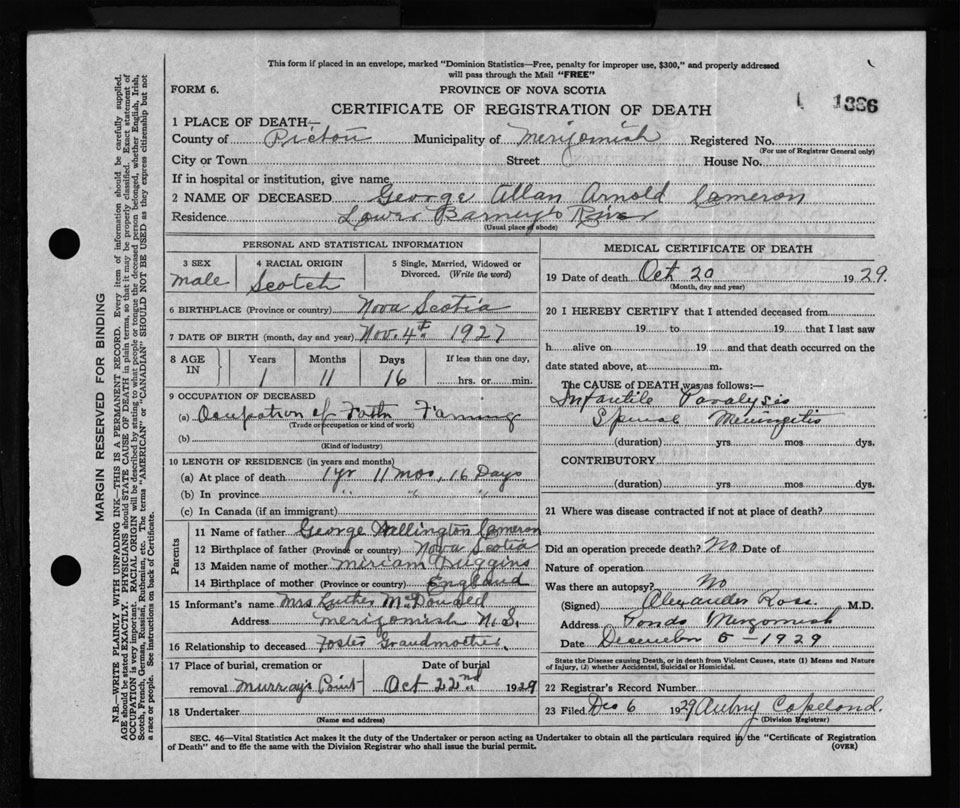 This form if placed in an envelope, marked "Dominion Statistics—Free, penalty for improper use, $300," and properly addressed
will pass through the Mail "FREE"
FORM 6.
PROVINCE OF NOVA SCOTIA
1336
CERTIFICATE OF REGISTRATION OF DEATH
1 PLACE OF DEATH—
County of Pictou Municipality of Merigomish Registered No.
(For use of Registrar General only)
City or Town Street House No.
If in hospital or institution, give name
2 NAME OF DECEASED George Allan Arnold Cameron
Residence Lower Barneys River
(Usual place of abode)
PERSONAL AND STATISTICAL INFORMATION
3 SEX
male
4 RACIAL ORIGIN
Scotch
5 Single, Married, Widowed or
Divorced. (Write the word)
6 BIRTHPLACE (Province or country) Nova Scotia
7 DATE OF BIRTH (month, day and year) Nov. 4th 1927
8 AGE IN
Years Months Days
1 11 16
If less than one day,
hrs. or min.
9 OCCUPATION OF DECEASED
(a) Ocupation of Fathr Farming
(Trade or occupation or kind of work)
(b)
(Kind of industry)
10 LENGTH OF RESIDENCE (in years and months)
(a) At place of death 1 yr 11 mos, 16 Days
(b) In province " " "
(c) In Canada (if an immigrant)
Parents
11 Name of father George Wellington Cameron
12 Birthplace of father (Province or country) Nova Scotia
13 Maiden name of mother Miriam Driggins
14 Birthplace of mother (Province or country) England
15 Informant's name Mrs Luther McDonald
Address Merigomish N.S.
16 Relationship to deceased Foster Grandmother.
17 Place of burial, cremation or
removal Murray's Point
Date of burial
Oct 22nd 1929
18 Undertaker
(Name and address)
MEDICAL CERTIFICATE OF DEATH
19 Date of death Oct 20 1929.
(Month, day and year)
20 I HEREBY CERTIFY that I attended deceased from
19 to 19 that I last saw
h alive on 19 and that death occurred on the
date stated above, at m.
The CAUSE of DEATH was as follows:—
Infantile Paralysis
Spinal Meningitis
(duration) yrs mos dys.
CONTRIBUTORY
(duration) yrs mos dys.
21 Where was disease contracted if not at place of death?
Did an operation precede death? No Date of
Nature of operation
Was there an autopsy? No
(Signed) Alexander Ross. M.D.
Address Ponds Merigomish
Date December 5 — 1929
State the Disease causing Death, or in death from Violent Causes, state (1) Means and Nature
of Injury, (2) whether Accidental, Suicidal or Homicidal.
22 Registrar's Record Number
23 Filed Dec 6 1929 Aubry Copeland.
(Division Registrar)
SEC. 46—Vital Statistics Act makes it the duty of the Undertaker or person acting as Undertaker to obtain all the particulars required in the "Certificate of Registration
of Death" and to file the same with the Division Registrar who shall issue the burial permit.
(OVER)
MARGIN RESERVED FOR BINDING
N.B.—WRITE PLAINLY WITH UNFADING INK—THIS IS A PERMANENT RECORD. Every item of information should be carefully supplied.
AGE should be stated EXACTLY. PHYSICIANS should STATE CAUSE OF DEATH in plain terms, so that it may be properly classified. Exact statement of
OCCUPATION is very important. RACIAL ORIGIN will be described by stating to what people or tongue the deceased person belonged, whether English, Irish,
Scotch, French, German, Russian, Ruthenian, etc. The terms "AMERICAN" or "CANADIAN" SHOULD NOT BE USED as they express citizenship but not
a race or people. See instructions on back of Certificate.